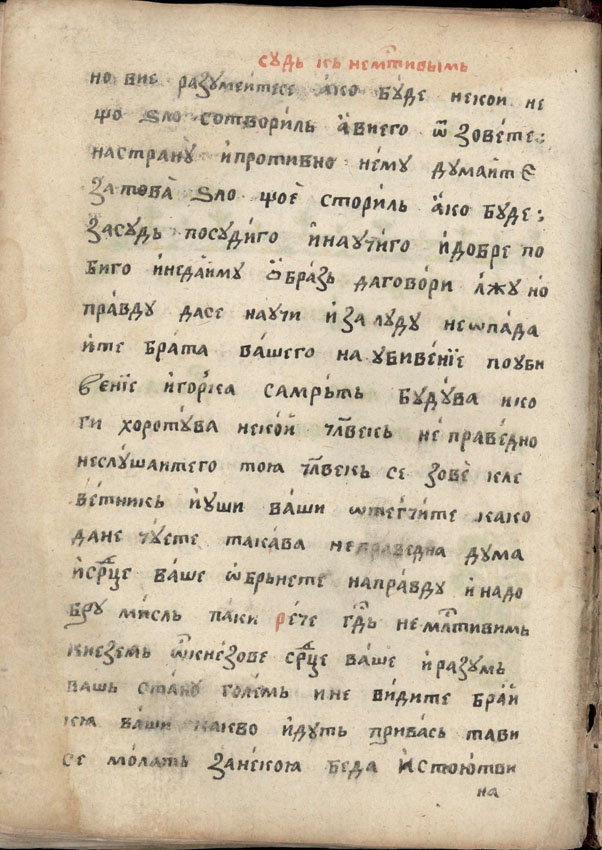 сꙋдь къ немⷭ҇тивымь
но вие разꙋмеите се а҆ко бꙋ́де некои не
що ѕло сотвори́ль а҆виего ѿзовете:
настранꙋ̀ и҆противно не́мꙋ дꙋмаи́те
затова̀ ѕло щоѐ сторѝль а҆ко бꙋде:
засꙋдь посꙋдѝго и҆наꙋчи́го и҆добре по
биго и҆неда́имꙋ ѡ҆бра́зь даговори лжꙋ но
пра́вдꙋ дасе наꙋчи и҆залꙋдꙋ неѡпада
и҆те брата ва́шего наꙋбиве́нїе поꙋби
ве́нїе и҆го́рка самрьть бꙋдꙋва ико
ги хоротꙋ́ва неко́и чл҃векь непра́ведно
неслꙋ́шаитего тою чл҃векь се зовѐ кле
ве́тникь и҆ꙋши ва́ши ѿтегчѝте како
дане чꙋ́ете така́ва неправедна дꙋма
и҆срⷣце ва́ше ѡ҆брьнете напра́вдꙋ и҆надо
брꙋ ми́сль па́ки ре́че гдⷭ҇ь немлⷭ҇тивимь
киеземь ѿ кне́зове срⷣце ва́ше и҆разꙋмь
вашь стана̀ голе́мь и не ви́дите бра́и
кѧ ва́ши какво и҆дꙋть привась тави
се мо́лать за некою беда и҆стою́тви
на